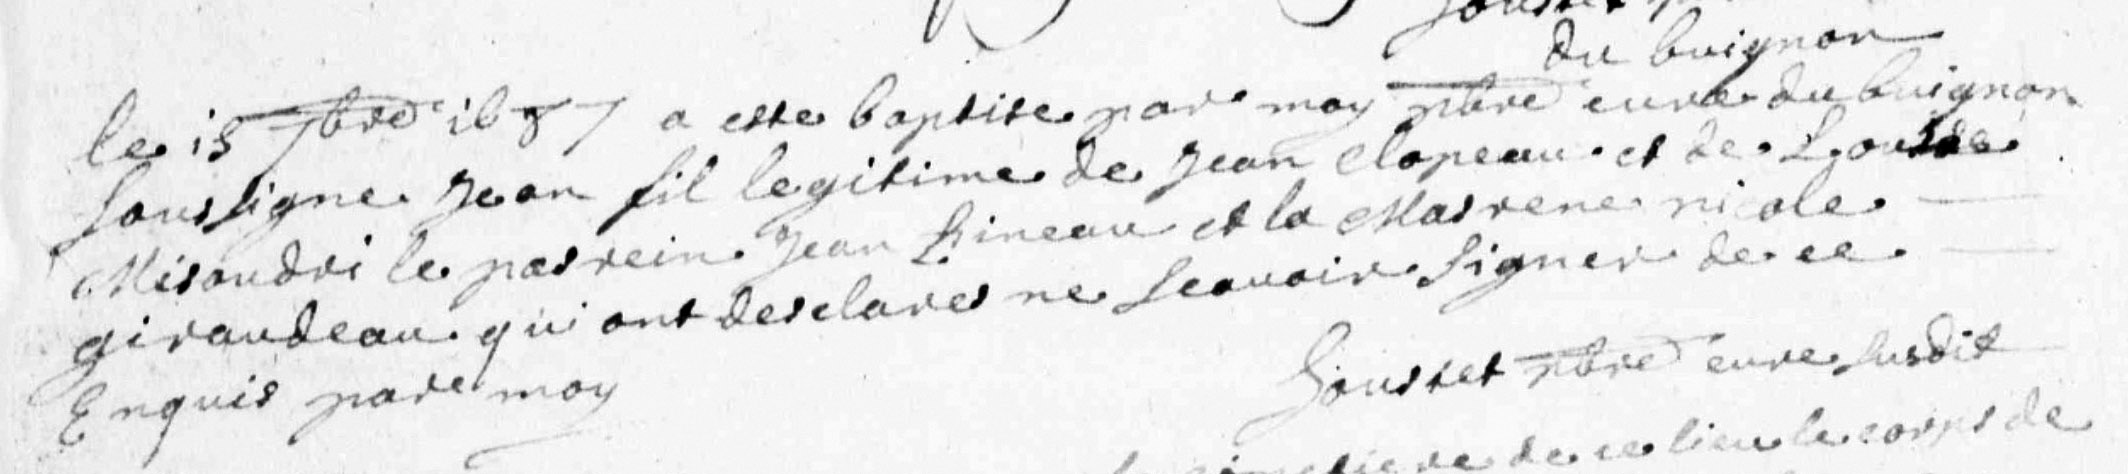 du buignon
le 15 7bre 1687 a este baptise par moy pbre cure du buignon
soussigne Jean fil legitime de Jean Clopeau et de Louise
Misandri le parrein Jean Pineau et la Marrene nicole
giraudeau qui ont desclares ne scavoir signer de ce
Enquis par moy
Jousset pbre cure susdit
de ce lieu le corps de